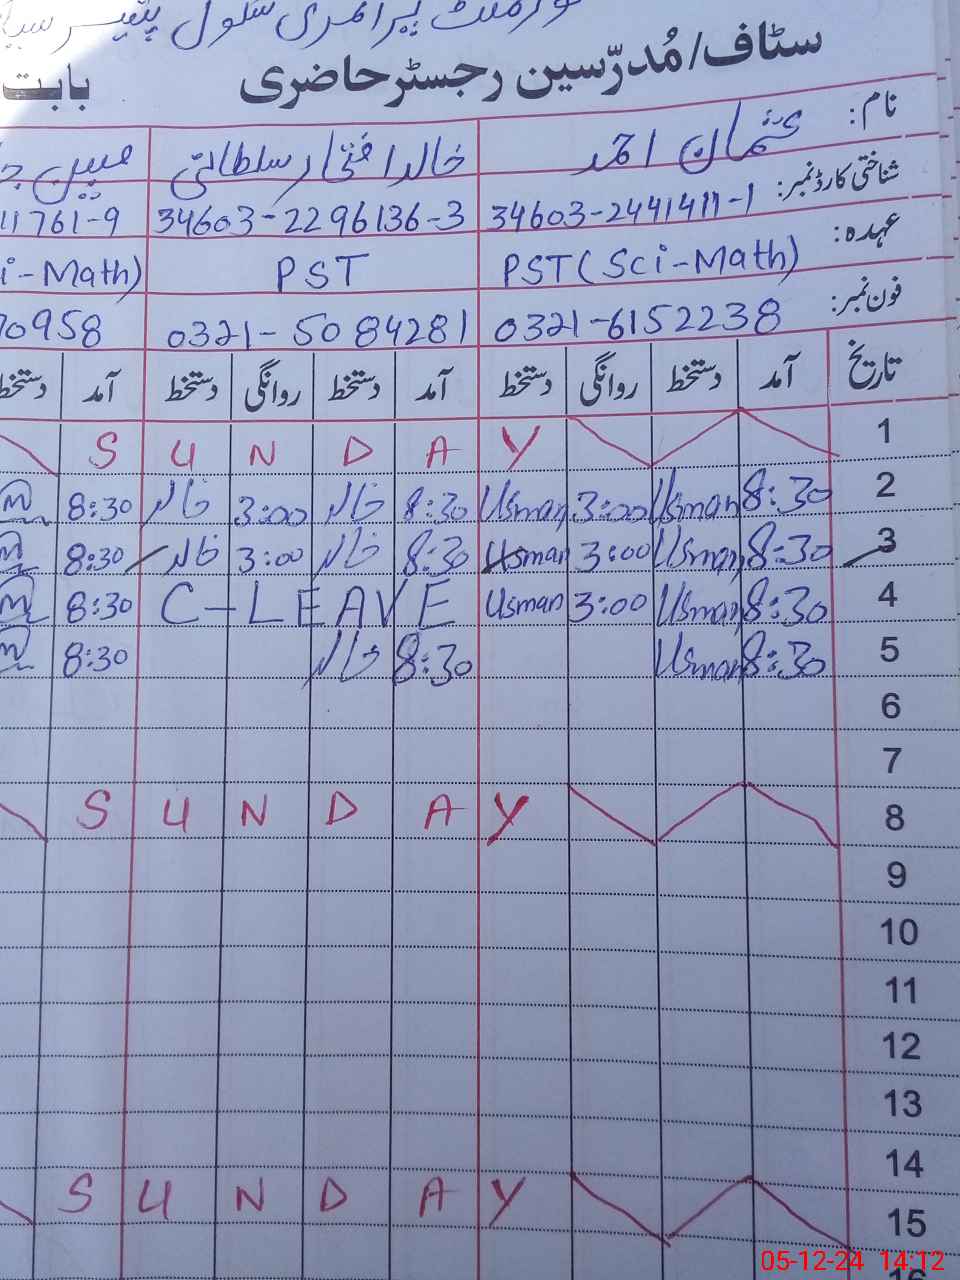 گورنمنٹ پرائمری سکول
سٹاف/مُدرّسین رجسٹر حاضری بابت
نام: عثمان احمد خالد افتخار سلطانی مبین
شناختی کارڈ نمبر: 34603-2441411-1 34603-2296136-3 11761-9
عہدہ: PST (Sci-Math) PST i-Math)
فون نمبر: 0321-6152238 0321-5084281 70958
تاریخ آمد دستخط روانگی دستخط آمد دستخط روانگی دستخط آمد دستخط
1 S U N D A Y
2 8:30 Usman 3:00 Usman 8:30 خالد 3:00 خالد 8:30 m
3 8:30 Usman 3:00 Usman 8:30 خالد 3:00 خالد 8:30 m
4 8:30 Usman 3:00 Usman C-LEAVE 8:30 m
5 8:30 Usman 8:30 خالد 8:30 m
6
7
8 S U N D A Y
9
10
11
12
13
14
15 S U N D A Y
16
05-12-24 14:12